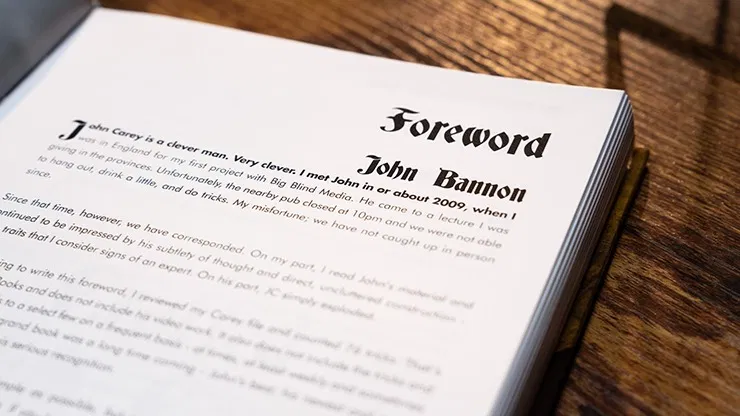 Foreword
John Bannon
John Carey is a clever man. Very clever. I met John in or about 2009, when I
was in England for my first project with Big Blind Media. He came to a lecture I was
giving in the provinces. Unfortunately, the nearby pub closed at 10pm and we were not able
to hang out, drink a little, and do tricks. My misfortune; we have not caught up in person
since.
Since that time, however, we have corresponded. On my part, I read John's material and
continued to be impressed by his subtlety of thought and direct, uncluttered construction -
traits that I consider signs of an expert. On his part, JC simply exploded.
to write this foreword, I reviewed my Carey file and counted tricks. That's
Books and does not include his video work. It also does not include the tricks and
to a select few on a frequent basis - at times, at least weekly and sometimes
grand book was a long time coming - John's best, his
serious recognition.
as possible,